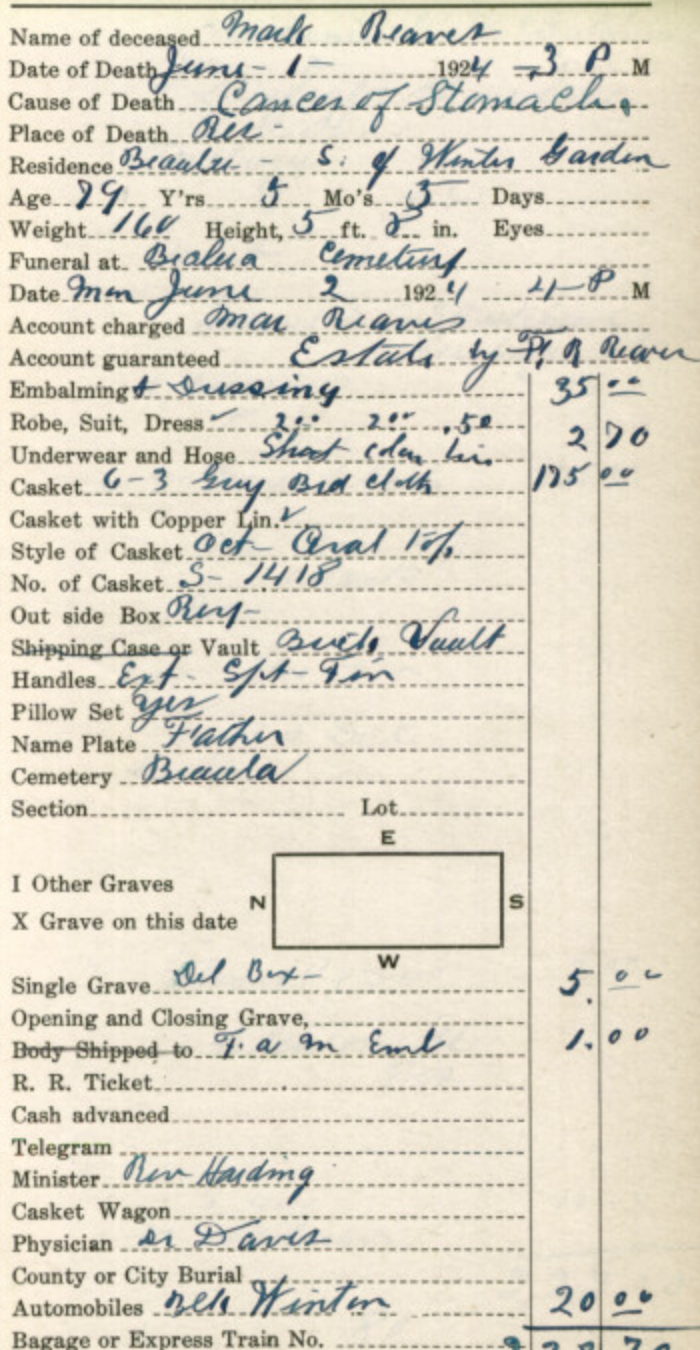 Name of deceased Mark Reaves
Date of Death June - 1 - 1924 - 3 P M
Cause of Death Cancer of Stomach.
Place of Death Res -
Residence - S. of Winter Garden
Age 79 Y'rs 5 Mo's 5 Days
Weight 160 Height, 5 ft. 8 in. Eyes
Funeral at Cemetery
Date Mon June 2 1924 4 - P M
Account charged Reaves
Account guaranteed Estate by R Reaves
Embalming + Dressing 35 00
Robe, Suit, Dress ✓ 2 00 2 00 .50
2 70
Underwear and Hose Short
Casket 6-3 Grey Brd cloth 175 00
Casket with Copper Lin. ✓
Style of Casket Oct - Oval Top
No. of Casket S - 1418
Out side Box
Shipping Case or Vault Vault
Handles Ext -
Pillow Set yes
Name Plate Father
Cemetery Beaula
Section Lot
E
I Other Graves
N S
X Grave on this date
W
Single Grave Del Box - 5.00
Opening and Closing Grave,
Body Shipped to 1.00
R. R. Ticket
Cash advanced
Telegram
Minister Rev Harding
Casket Wagon
Physician Dr Davis
County or City Burial
Automobiles 20 00
Bagage or Express Train No.